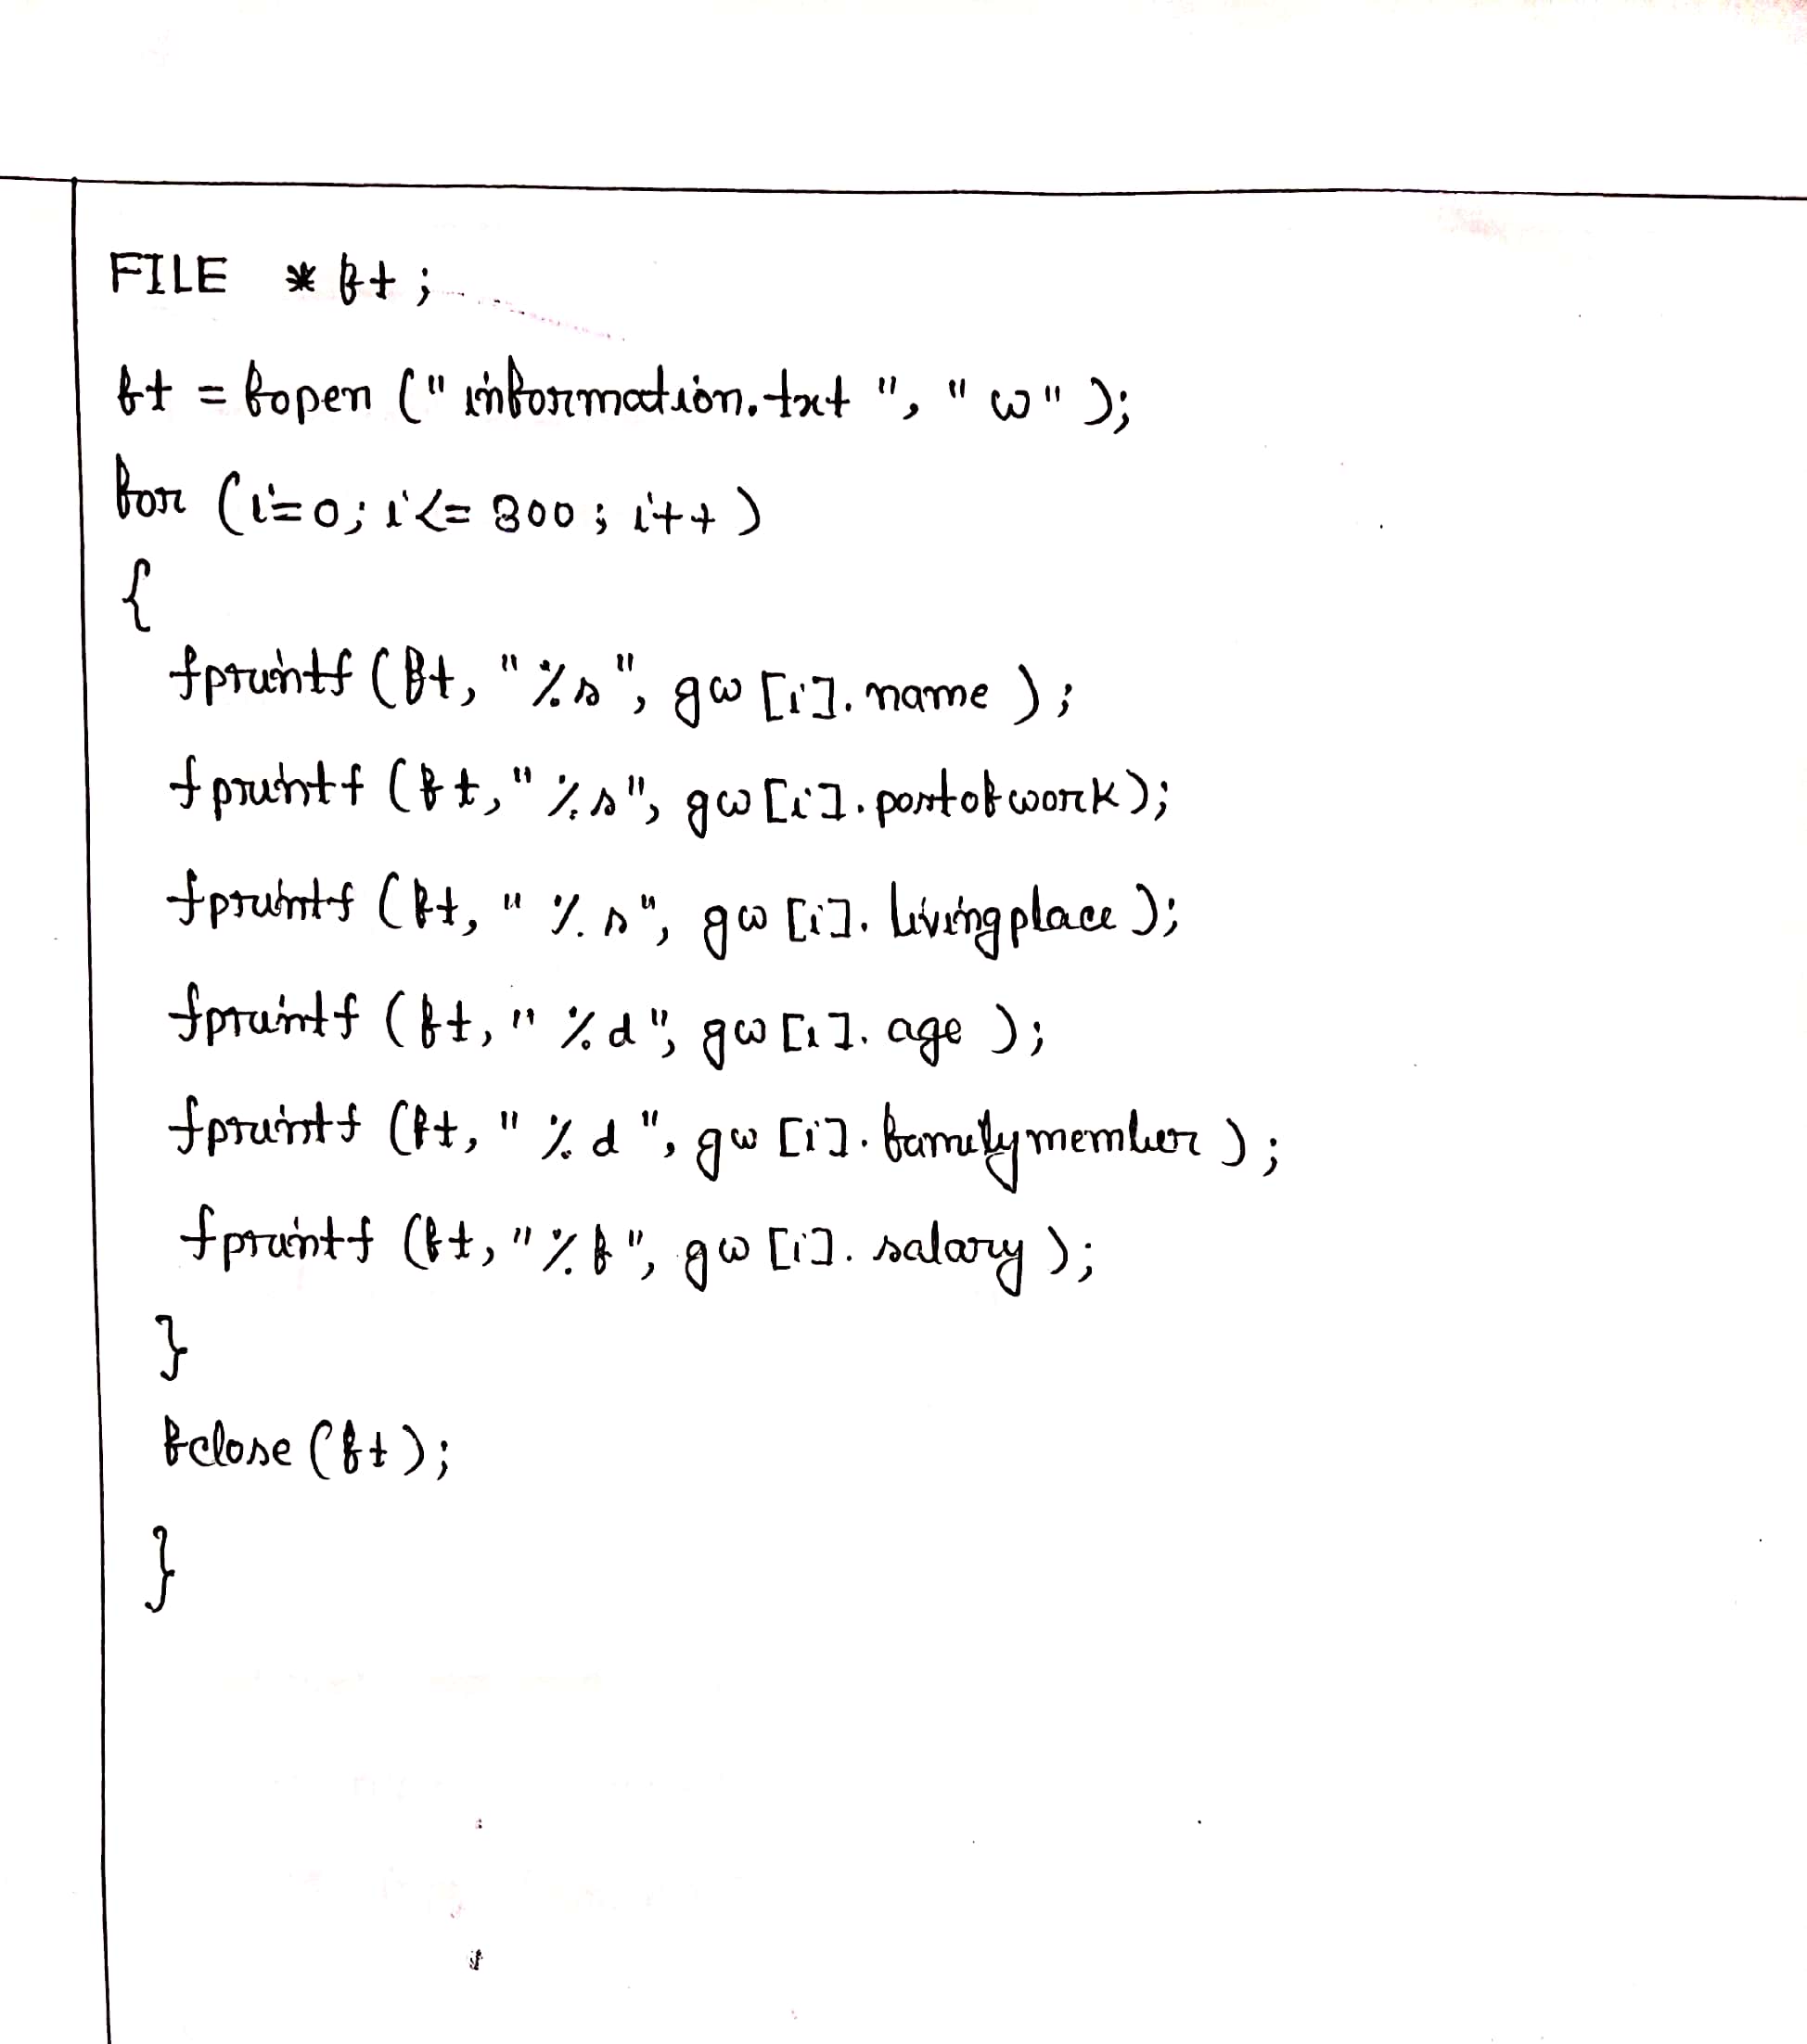 FILE * ft ;
ft = fopen (" information.txt ", " w" );
for (i=0; i<= 300 ; i++ )
{
fprintf (ft, "%s", gw [i]. name ) ;
fprintf (ft, "%s", gw [i]. postofwork);
fprintf (ft, " %s", gw [i]. livingplace );
fprintf (ft, " %d", gw [i]. age );
fprintf (ft, " %d ", gw [i]. familymember ) ;
fprintf (ft, "%f", gw [i]. salary );
}
fclose (ft);
}